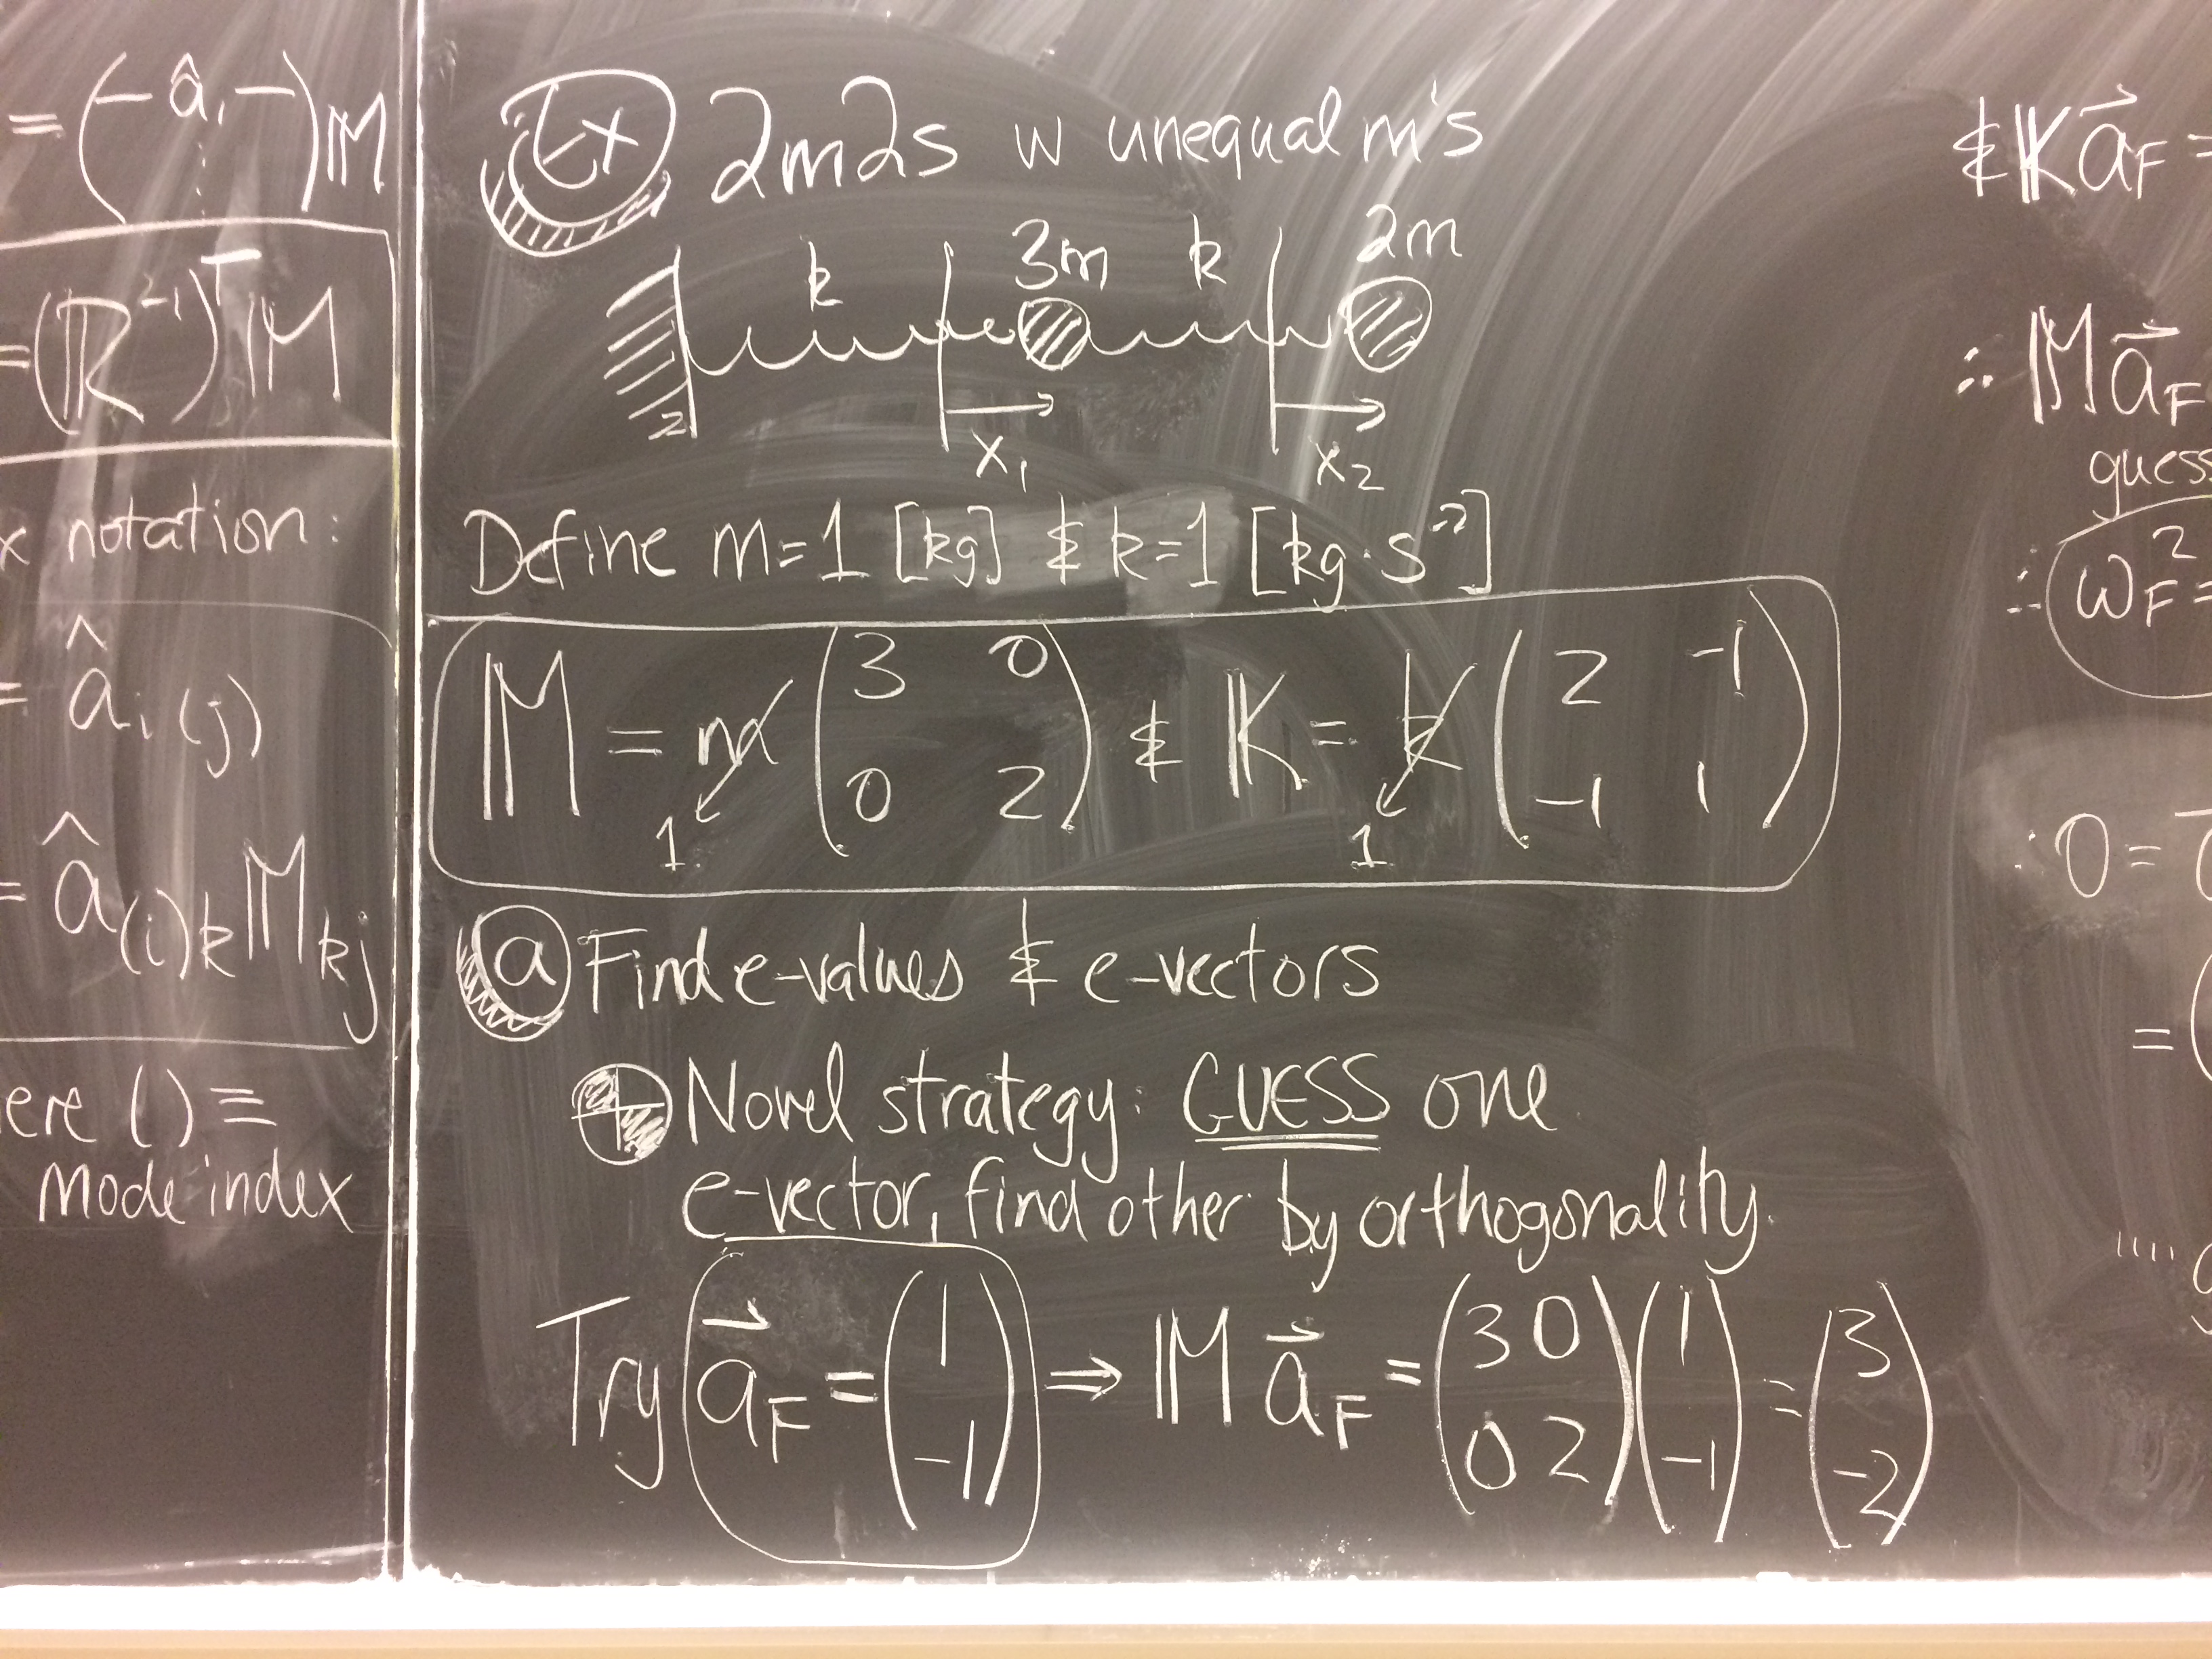 = (— â₁ —) 𝕄
⋮
= (ℝ⁻¹)ᵀ 𝕄
x notation:
= â i (j)
= â (i)k 𝕄 kj
ere ( ) ≡
Mode index
Ex 2m2s w unequal m's
k 3m k 2m
x₁ x₂
Define m=1 [kg] & k=1 [kg·s⁻²]
𝕄 = m (3 0; 0 2) & 𝕂 = k (2 -1; -1 1)
1 1
a Find e-values & e-vectors
Novel strategy: GUESS one
e-vector, find other by orthogonality.
Try a⃗F = (1; -1) ⇒ 𝕄 a⃗F = (3 0; 0 2)(1; -1) = (3; -2)
& 𝕂 a⃗F =
∴ 𝕄 a⃗F
guess
∴ ωF² =
∴ 0 =
= (